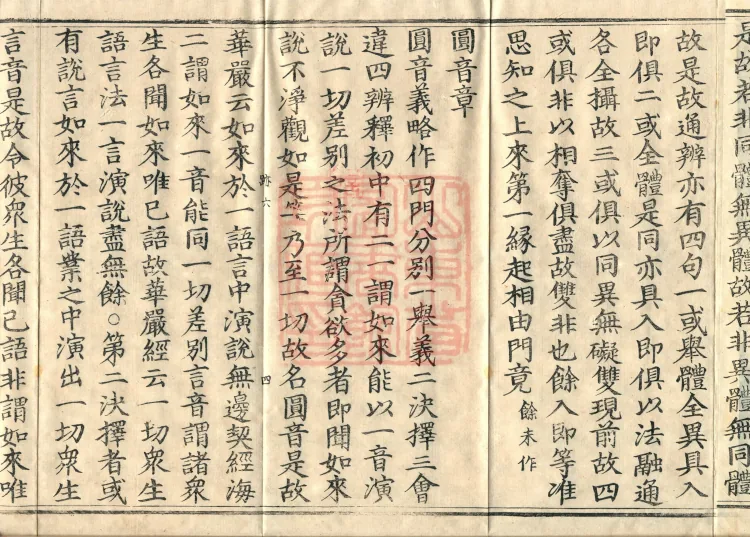 是故若非同體無異體故若非異體無同體
故是故通辨亦有四句一或舉體全異具入
即俱二或全體是同亦具入即俱以法融通
各全攝故三或俱以同異無礙雙現前故四
或俱非以相奪俱盡故雙非也餘入即等准
思知之上來第一緣起相由門竟 餘未作
圓音章
圓音義略作四門分別一舉義二決擇三會
違四辨釋初中有二一謂如來能以一音演
說一切差別之法所謂貪欲多者即聞如來
說不淨觀如是等乃至一切故名圓音是故
跡六 四
華嚴云如來於一語言中演說無邊契經海
二謂如來一音能同一切差別言音謂諸眾
生各聞如來唯己語故華嚴經云一切眾生
語言法一言演說盡無餘○第二決擇者或
有說言如來於一語業之中演出一切眾生
言音是故令彼眾生各聞己語非謂如來唯